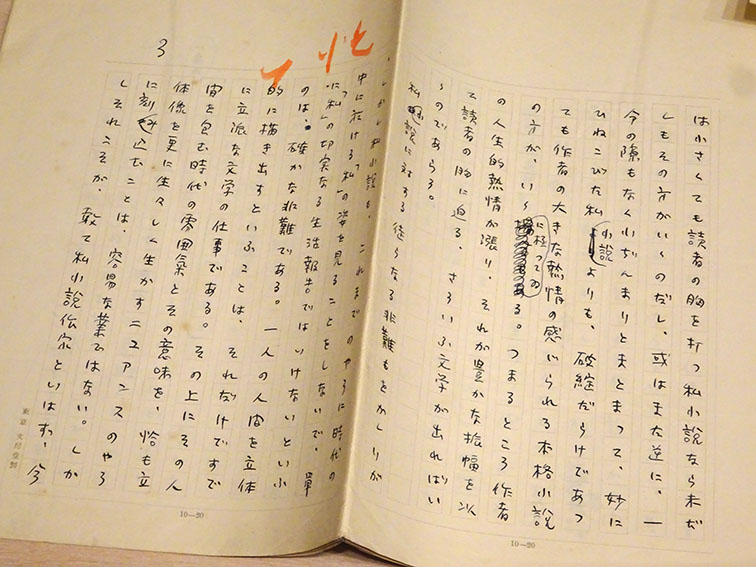 は小さくても読者の胸を打つ私小説なら未だ
しもその方がいゝのだし、或はまた逆に、一
今の隙もなく小ぢんまりとまとまって、妙に
ひねこびた私小説よりも、破綻だらけであっ
ても作者の大きな熱情の感じられる本格小説
の方が、いゝに極ってゐる。つまるところ作者
の人生的熱情が漲り、それが豊かな振幅を以
て読者の胸に迫る、さういふ文学が出ればい
ゝのであらう。
私小説に対する徒らなる非難もをかしいが
しかし私小説も、これまでのやうに時代の
中に於ける「私」の姿を見ることをしないで、単
に「私」の切実なる生活報告ではいけないといふ
のは、確かな非難である。一人の人間を立体
的に描き出すといふことは、それだけですで
に立派な文学の仕事である。その上にその人
間を包む時代の雰囲氣とその意味を、恰も立
体像を更に生々しく生かすニュアンスのやう
に刻み込むことは、容易な業ではない。しか
しそれこそが、敢て私小説作家といはず、今
3
10—20
10—20